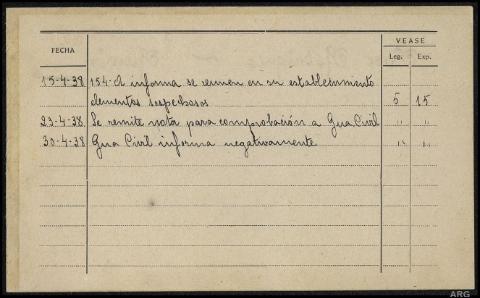 VEASE
FECHA Leg. Exp.
15-4-38 154-A informa se reunen en su establecimiento
elementos sospechosos 5 15
23-4-38 Se remite nota para comprobación a Gua Civil " "
30-4-38 Gua Civil informa negativamente " "
ARG